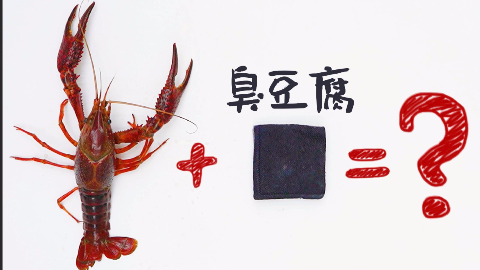 臭豆腐
+ = ?